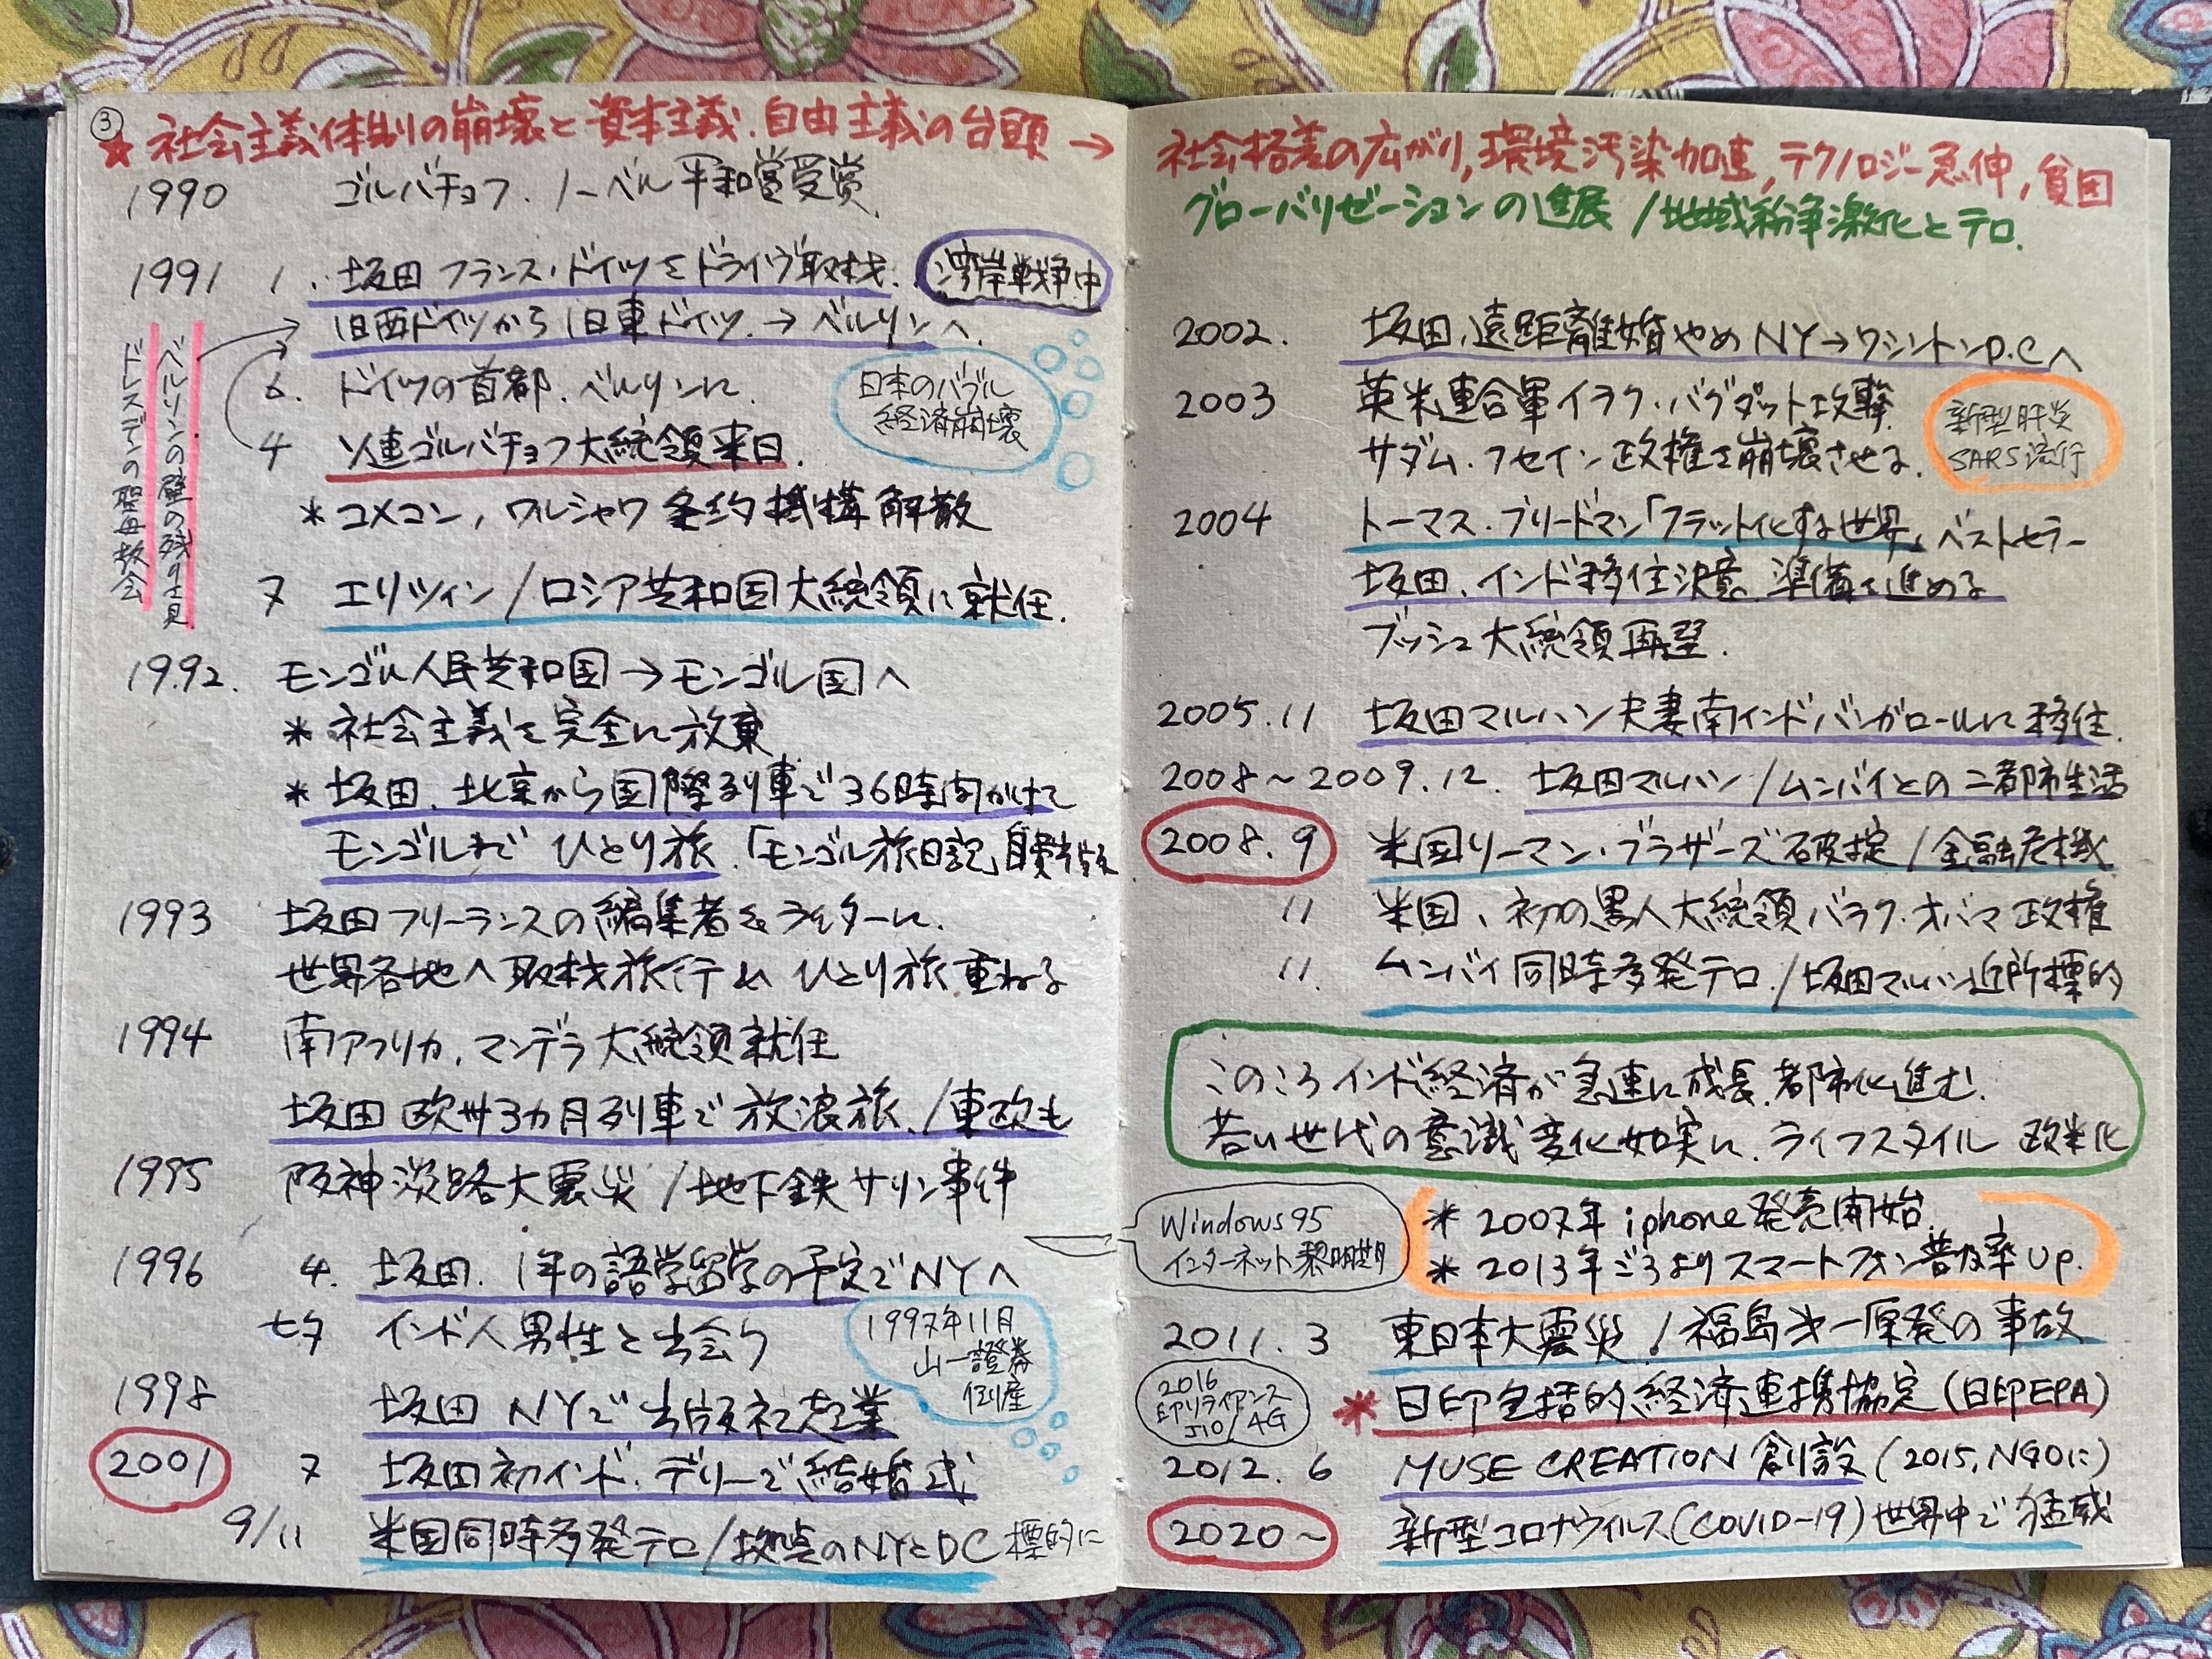 ③
★ 社会主義体制の崩壊と資本主義.自由主義の台頭 →
1990 ゴルバチョフ.ノーベル平和賞受賞.
1991 1. 坂田 フランス・ドイツをドライヴ取材. 湾岸戦争中
旧西ドイツから旧東ドイツ.→ベルリンへ.
6. ドイツの首都.ベルリンに.
4 ソ連ゴルバチョフ大統領来日.
日本のバブル
経済崩壊
ベルリンの壁の残り
ドレスデンの聖母教会
* コメコン, ワルシャワ条約機構解散
7 エリツィン/ロシア共和国大統領に就任.
1992. モンゴル人民共和国→モンゴル国へ
* 社会主義を完全に放棄
* 坂田.北京から国際列車で36時間かけて
モンゴルまで ひとり旅.「モンゴル旅日記」自費出版
1993 坂田フリーランスの編集者&ライターに.
世界各地へ取材旅行& ひとり旅重ねる
1994 南アフリカ.マンデラ大統領就任
坂田 欧州3カ月列車で放浪旅./東欧も
1995 阪神淡路大震災/地下鉄サリン事件
1996 4. 坂田.1年の語学留学の予定でNYへ
七夕 インド人男性と出会う
1997年11月
山一證券
倒産
1998 坂田 NYで出版社起業
2001 7 坂田初インド.デリーで結婚式
9/11 米国同時多発テロ/拠点のNYとDC標的に
社会格差の広がり,環境汚染加速,テクノロジー急伸,貧困
グローバリゼーションの進展/地域紛争激化とテロ.
2002. 坂田、遠距離婚やめNY→ワシントンD.Cへ
2003 英米連合軍イラク・バグダット攻撃.
サダム・フセイン政権を崩壊させる.
新型肝炎
SARS流行
2004 トーマス・フリードマン「フラット化する世界」ベストセラー
坂田、インド移住決意。準備を進める
ブッシュ大統領再選.
2005.11 坂田マルハン夫妻南インドバンガロールに移住.
2008〜2009.12. 坂田マルハン/ムンバイとの二都市生活
2008.9 米国リーマン・ブラザーズ破綻/金融危機
11 米国、初の黒人大統領バラク・オバマ政権
11. ムンバイ同時多発テロ./坂田マルハン近所標的
このころインド経済が急速に成長.都市化進む.
若い世代の意識変化如実に.ライフスタイル 欧米化
Windows95
インターネット黎明期
* 2007年 iphone発売開始.
* 2013年ごろよりスマートフォン普及率Up.
2011.3 東日本大震災/福島第一原発の事故
2016
印リライアンス
JIO/4G
* 日印包括的経済連携協定(日印EPA)
2012.6 MUSE CREATION 創設(2015,NGOに)
2020〜 新型コロナウイルス(COVID-19)世界中で猛威